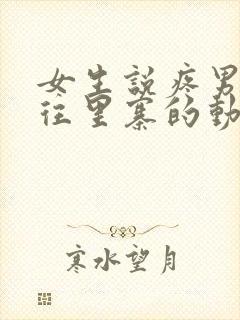 女生說疼男
往里寨的動
寒水望月